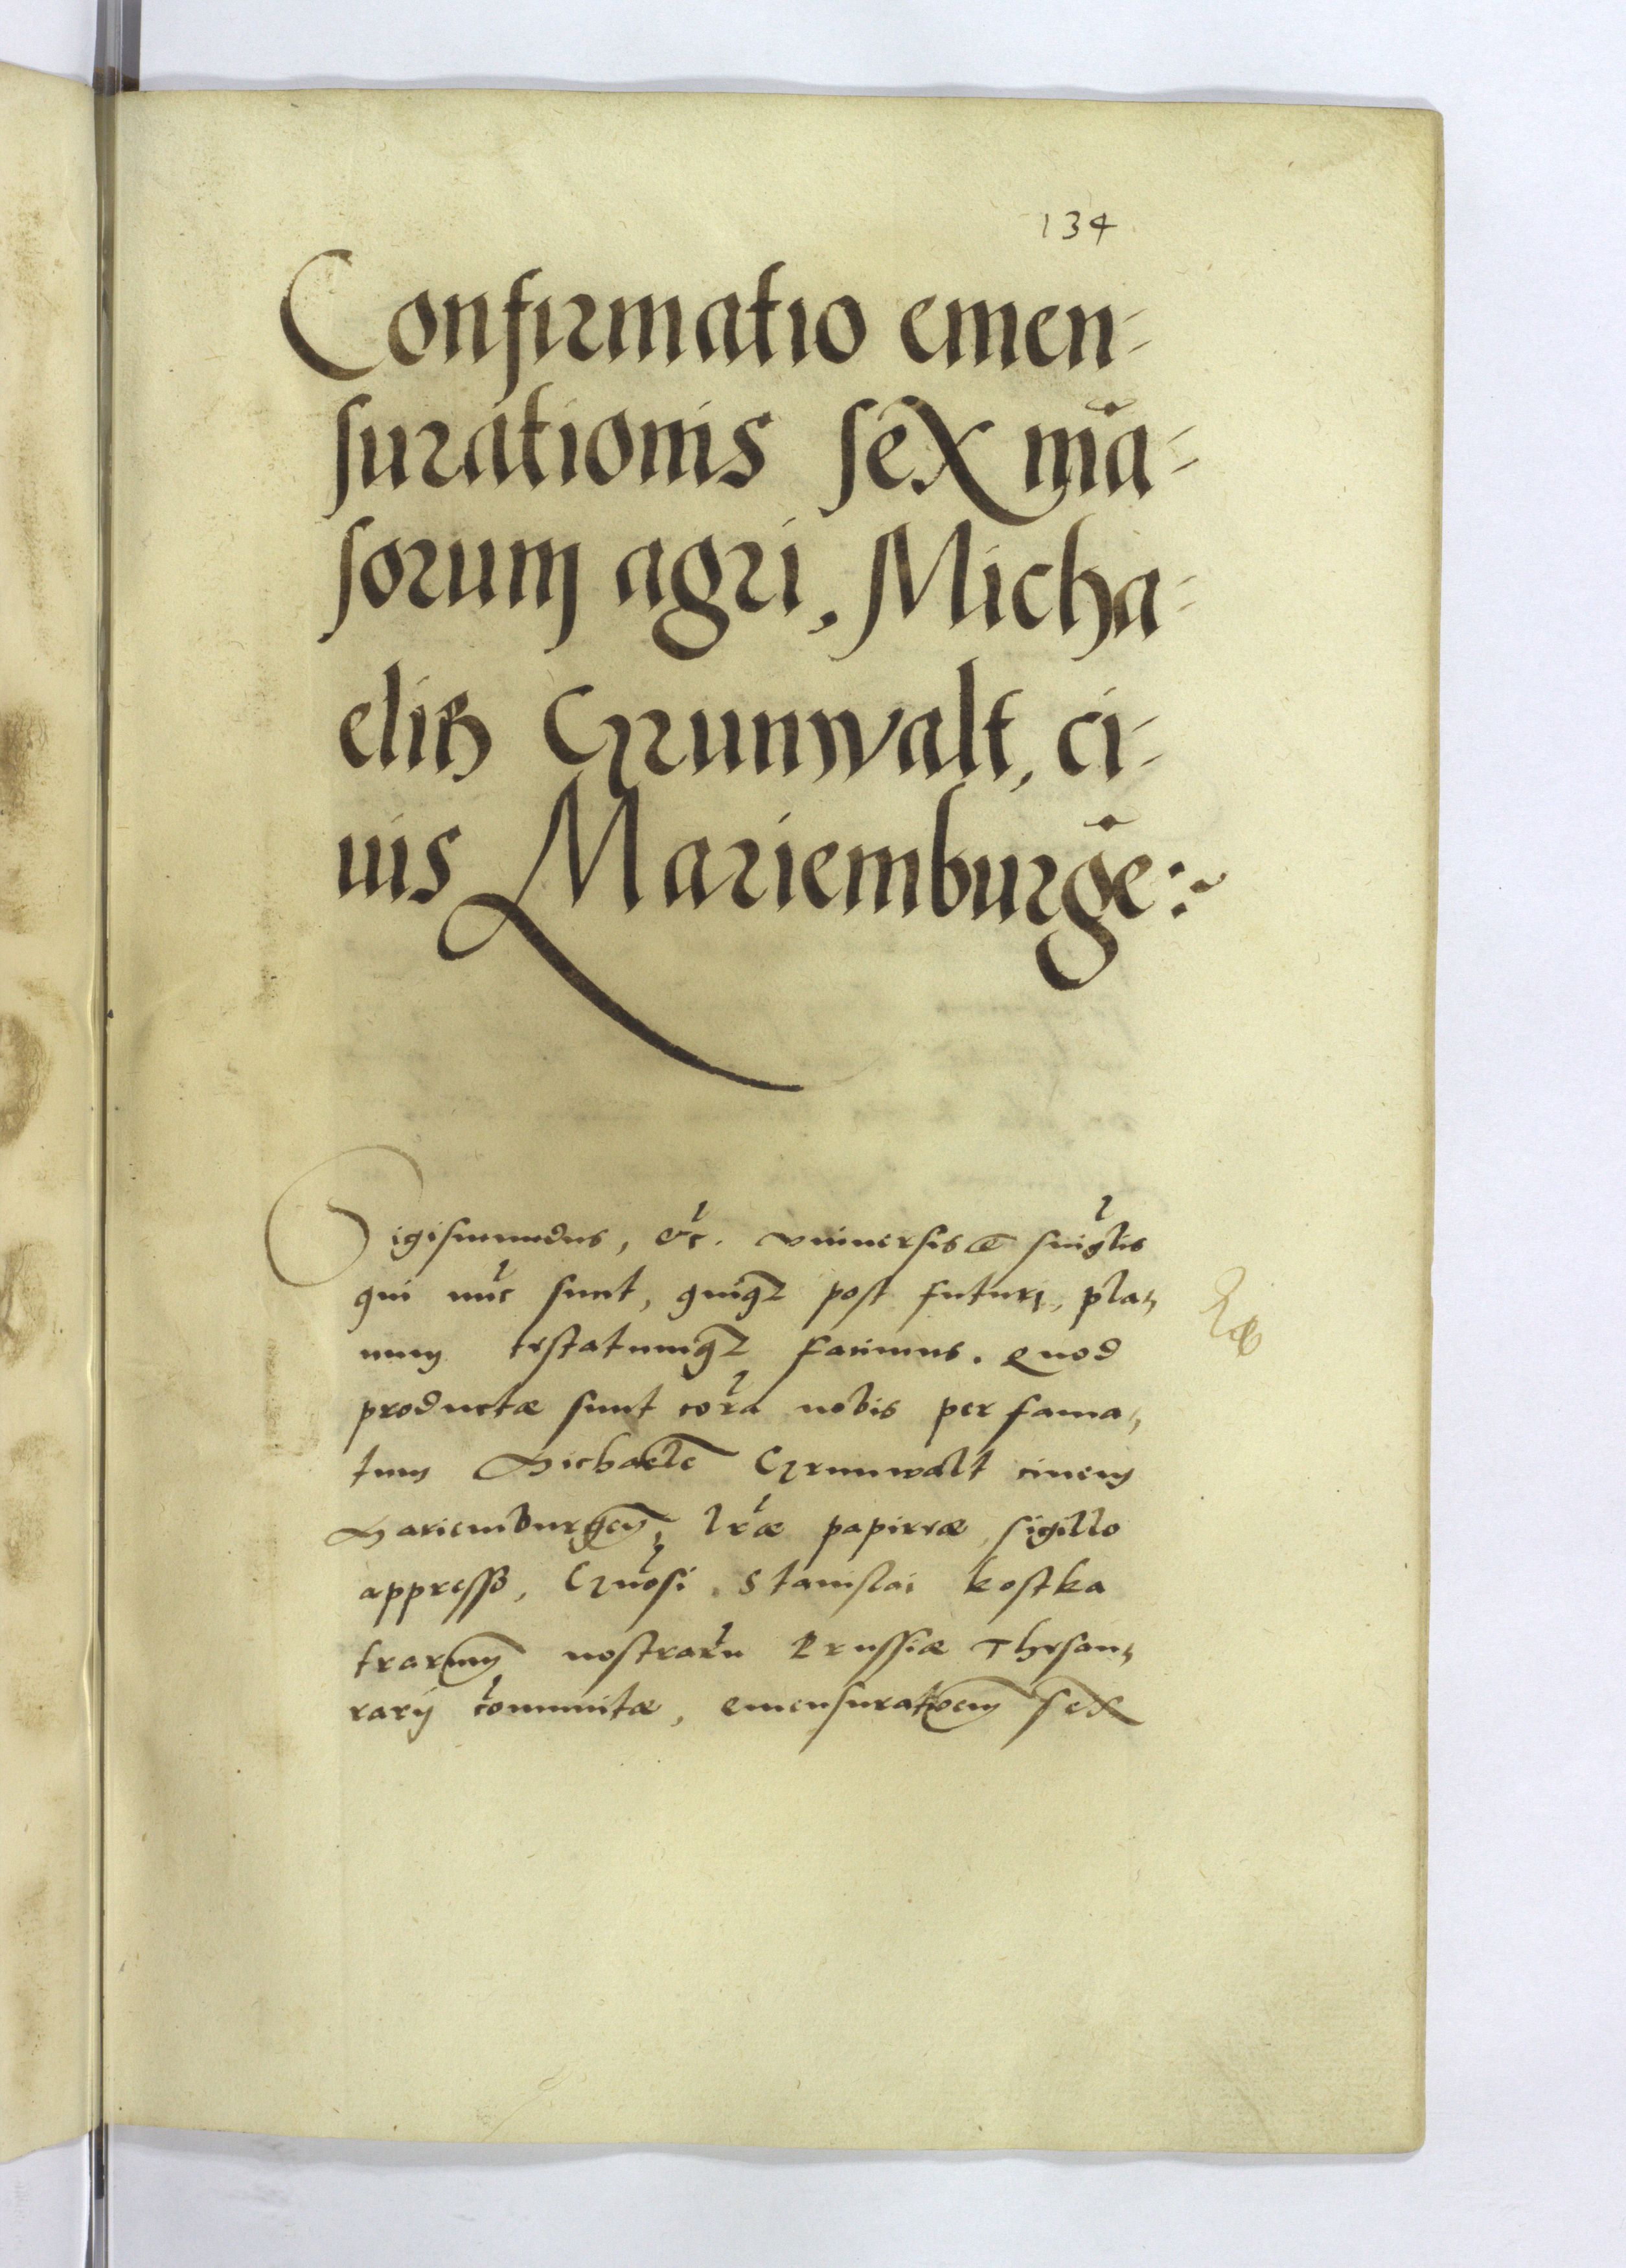 134
Confirmatio emen-
surationis sex mã-
sorum agri, Micha-
elis Grunwalt, ci-
uis Mariemburgẽ:~
Sigismundus, &c̃. vniuersis et singl̃is
qui nũc sunt, quiq̃ post futuri, pla-
num testatumq̃ facimus. Quod
productæ sunt corã nobis per fama-
tum Michaelẽ Grunwalt ciuem
Mariemburgeñ, lr̃æ papireæ, sigillo
appresso, Gñosi Stanislai kostka
terrarum nostrarũ Prussiæ Thesau-
rarij cõmunitæ, emensurationem sex